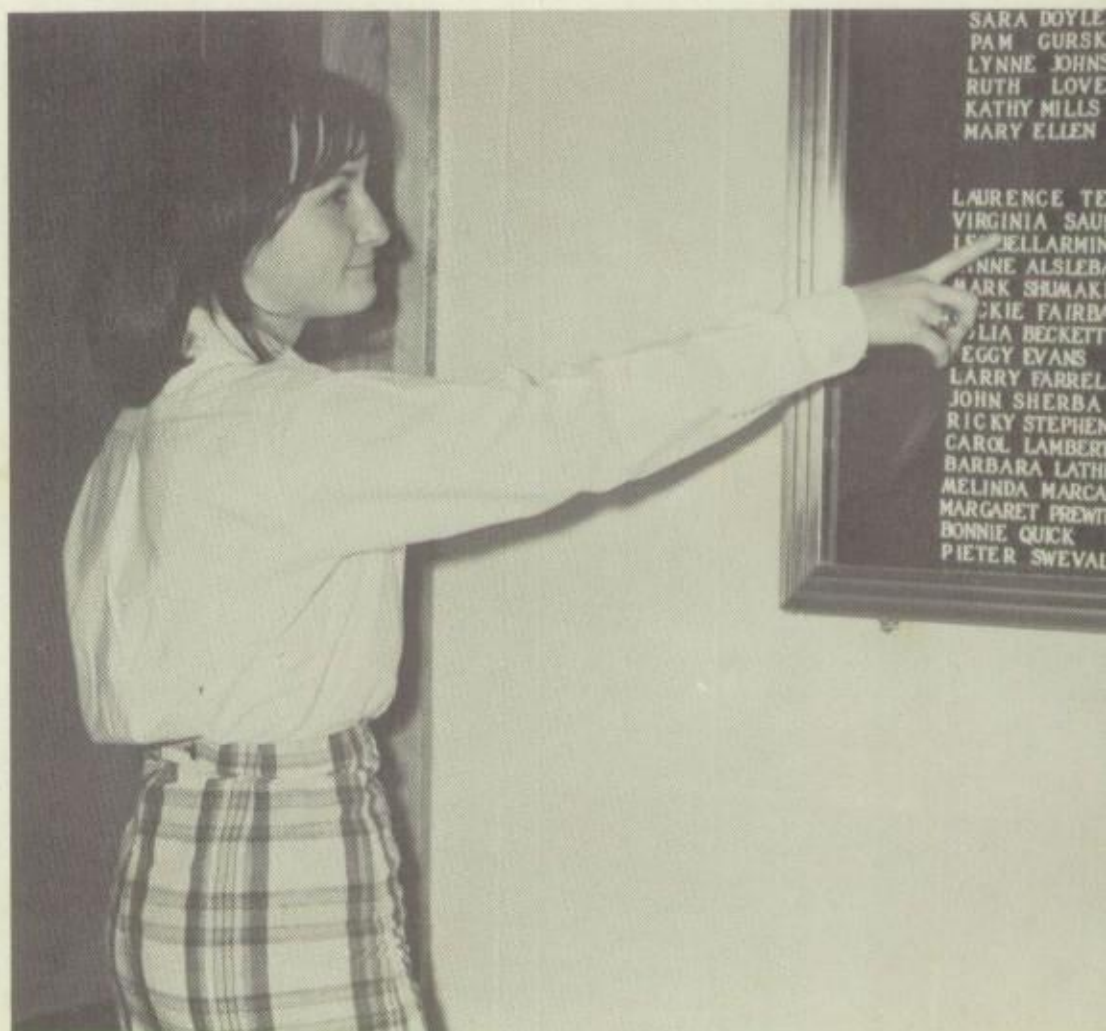 SARA DOYLE
PAM GURSK
LYNNE JOHNS
RUTH LOVE
KATHY MILLS
MARY ELLEN
LAURENCE TE
VIRGINIA SAU
BELLARMIN
YNNE ALSLEBA
MARK SHUMAK
CKIE FAIRBA
LIA BECKETT
EGGY EVANS
LARRY FARREL
JOHN SHERBA
RICKY STEPHEN
CAROL LAMBERT
BARBARA LATH
MELINDA MARCA
MARGARET PREWIT
BONNIE QUICK
PIETER SWEVAL